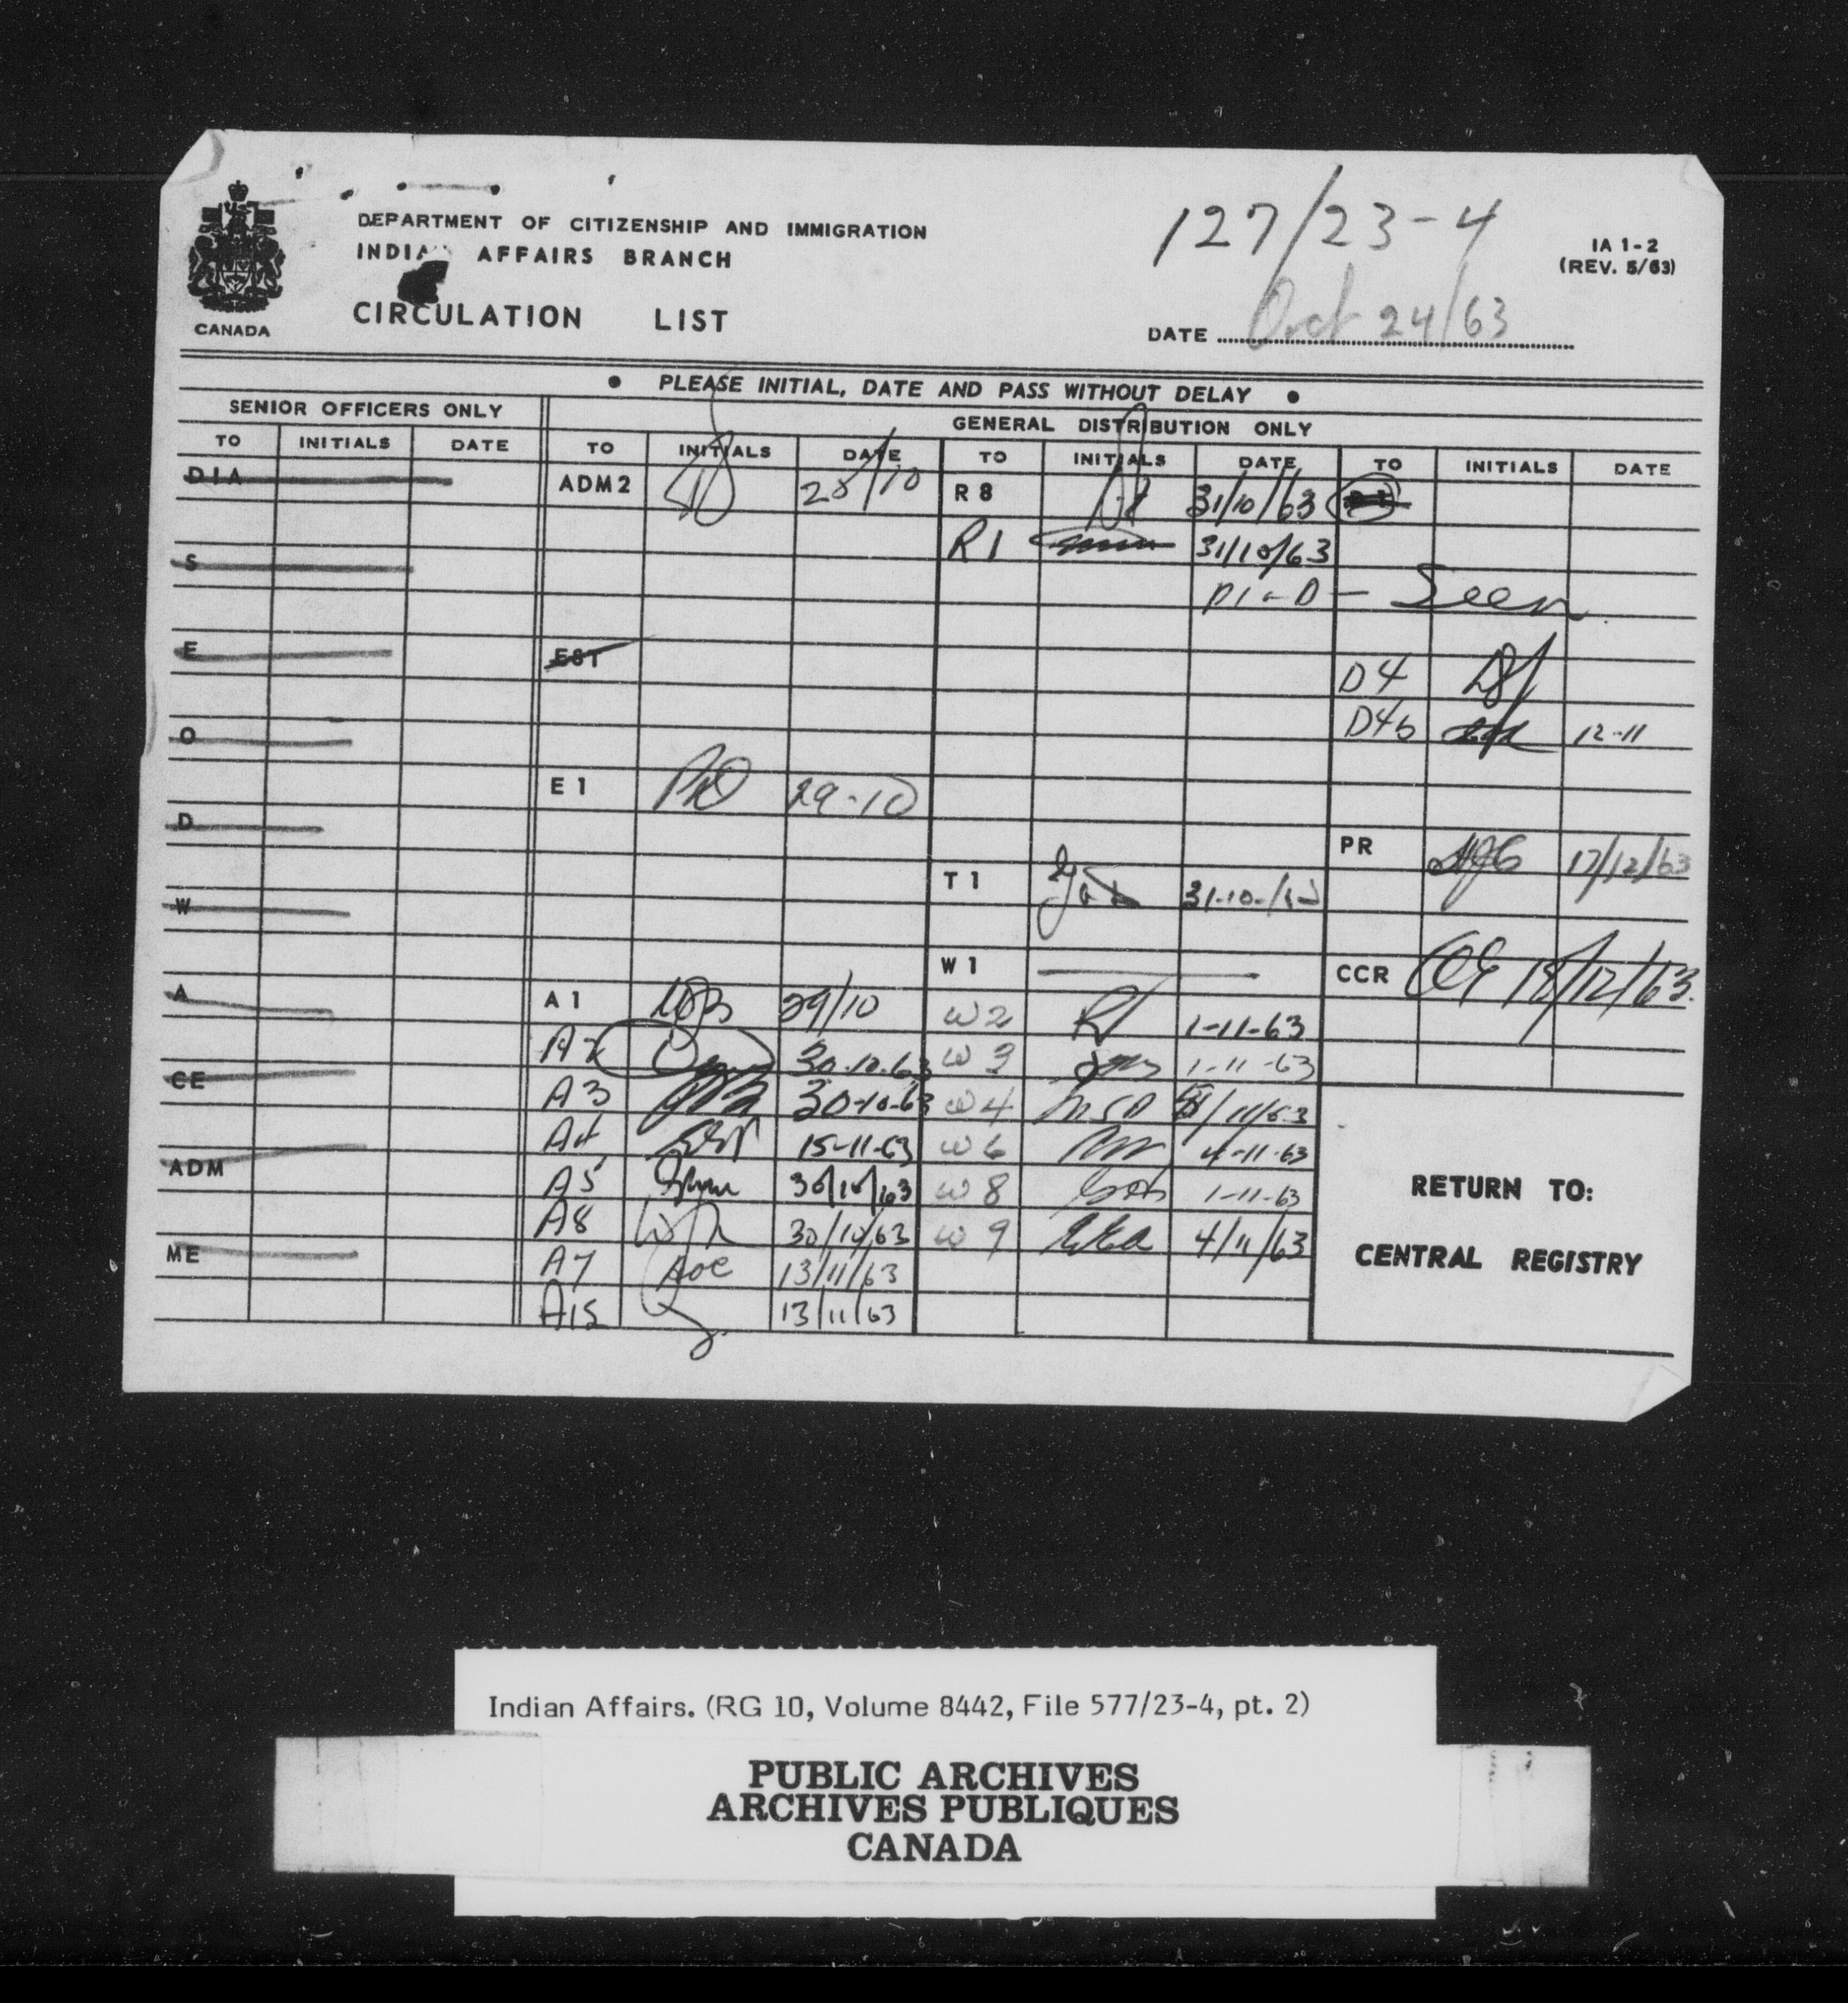 DEPARTMENT OF CITIZENSHIP AND IMMIGRATION
INDIAN AFFAIRS BRANCH
CIRCULATION LIST
CANADA
127/23-4
IA 1-2
(REV. 5/63)
DATE Oct 24/63
• PLEASE INITIAL, DATE AND PASS WITHOUT DELAY •
SENIOR OFFICERS ONLY
GENERAL DISTRIBUTION ONLY
TO INITIALS DATE TO INITIALS DATE TO INITIALS DATE TO INITIALS DATE
DIA
S
E
O
D
W
A
CE
ADM
ME
ADM2 28/10
EST
E1 29-10
A1 29/10
A2 30-10-63
A3 30-10-63
A4 15-11-63
A5 30/10/63
A8 30/10/63
A7 13/11/63
A15 13/11/63
R8 31/10/63
R1 31/10/63
Seen
T1
W1
W2 1-11-63
W3 1-11-63
W4 /11/63
W6 4-11-63
W8 1-11-63
W9 4/11/63
D4
D4b 12-11
PR 17/12/63
CCR 18/12/63.
RETURN TO:
CENTRAL REGISTRY
Indian Affairs. (RG 10, Volume 8442, File 577/23-4, pt. 2)
PUBLIC ARCHIVES
ARCHIVES PUBLIQUES
CANADA